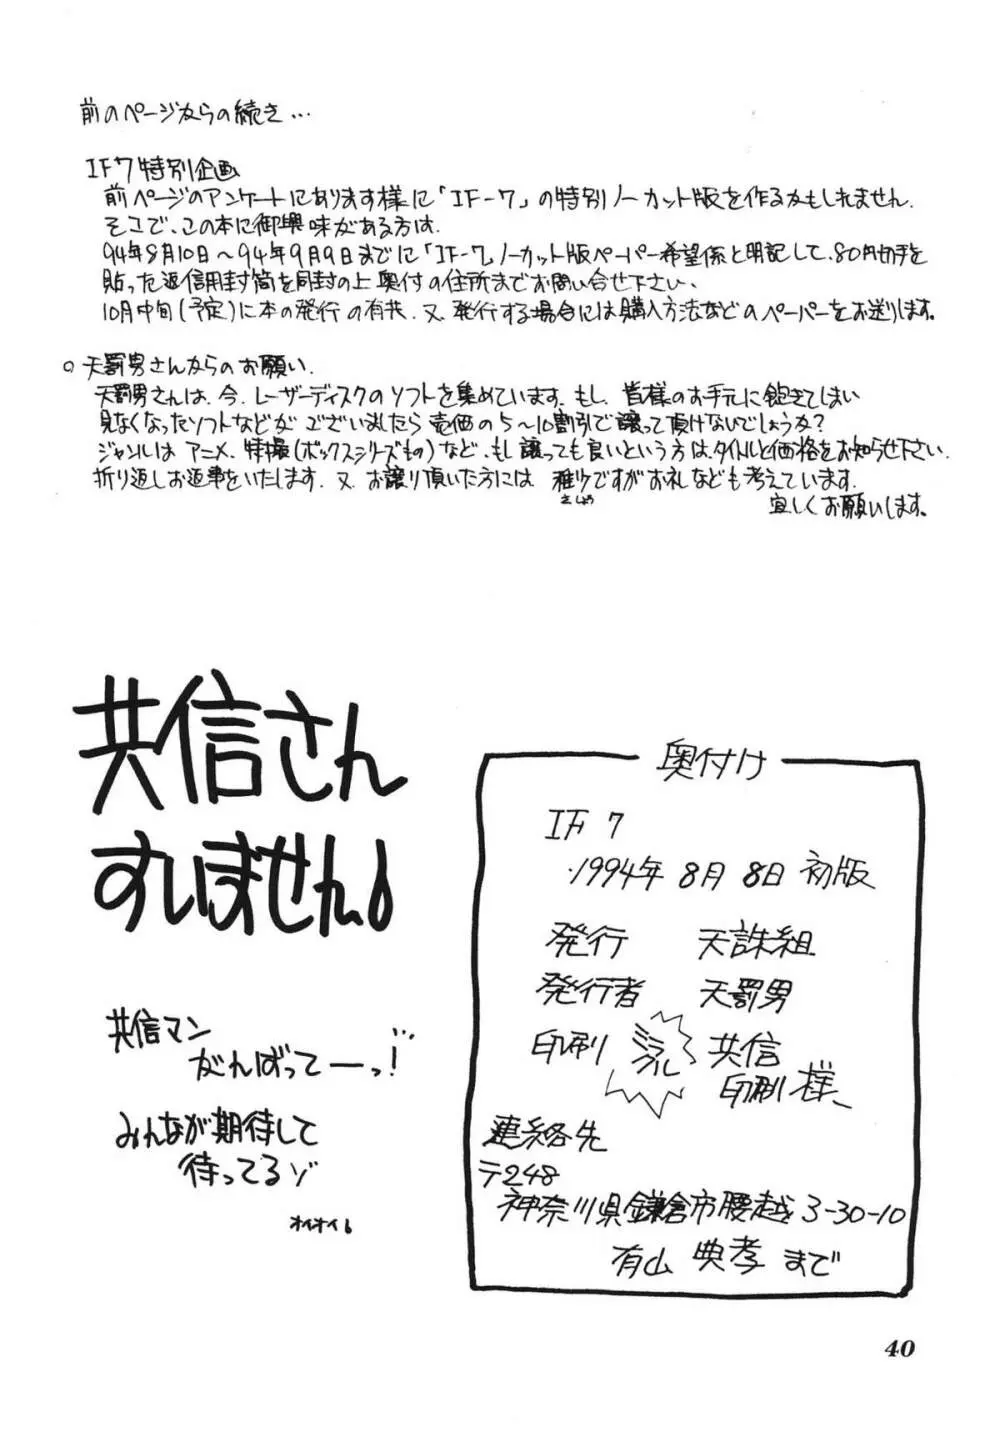 前のページからの続き…
IF7特別企画
前ページのアンケートにあります様に「IF-7」の特別ノーカット版を作るかもしれません.
そこで、この本に御興味がある方は.
94年8月10日～94年9月9日までに「IF-7」ノーカット版ペーパー希望係と明記して、80円切手を
貼った返信用封筒を同封の上奥付の住所までお問い合せ下さい、
10月中旬(予定)に本の発行の有無、又、発行する場合には購入方法などのペーパーをお送りします。
○天罰男さんからのお願い.
天罰男さんは、今、レーザーディスクのソフトを集めています。もし、皆様のお手元に飽きてしまい
見なくなったソフトなどがございましたら売価の5～10割引で譲って頂けないでしょうか?
ジャンルはアニメ、特撮(ボックスシリーズもの)など、もし譲っても良いという方は、タイトルと価格をお知らせ下さい.
折り返しお返事をいたします. 又、お譲り頂いた方には些少ですがお礼なども考えています.
さしょう
宜しくお願いします。
共信さん
すいません!
共信マン
がんばってーっ!
みんなが期待して
待ってるゾ
オイオイ!
奥付け
IF 7
.1994年 8月 8日 初版
発行 天誅組
発行者 天罰男
印刷 ミラクル 共信
印刷 様、
連絡先
〒248
神奈川県鎌倉市腰越 3-30-10
有山 典孝 まで
40